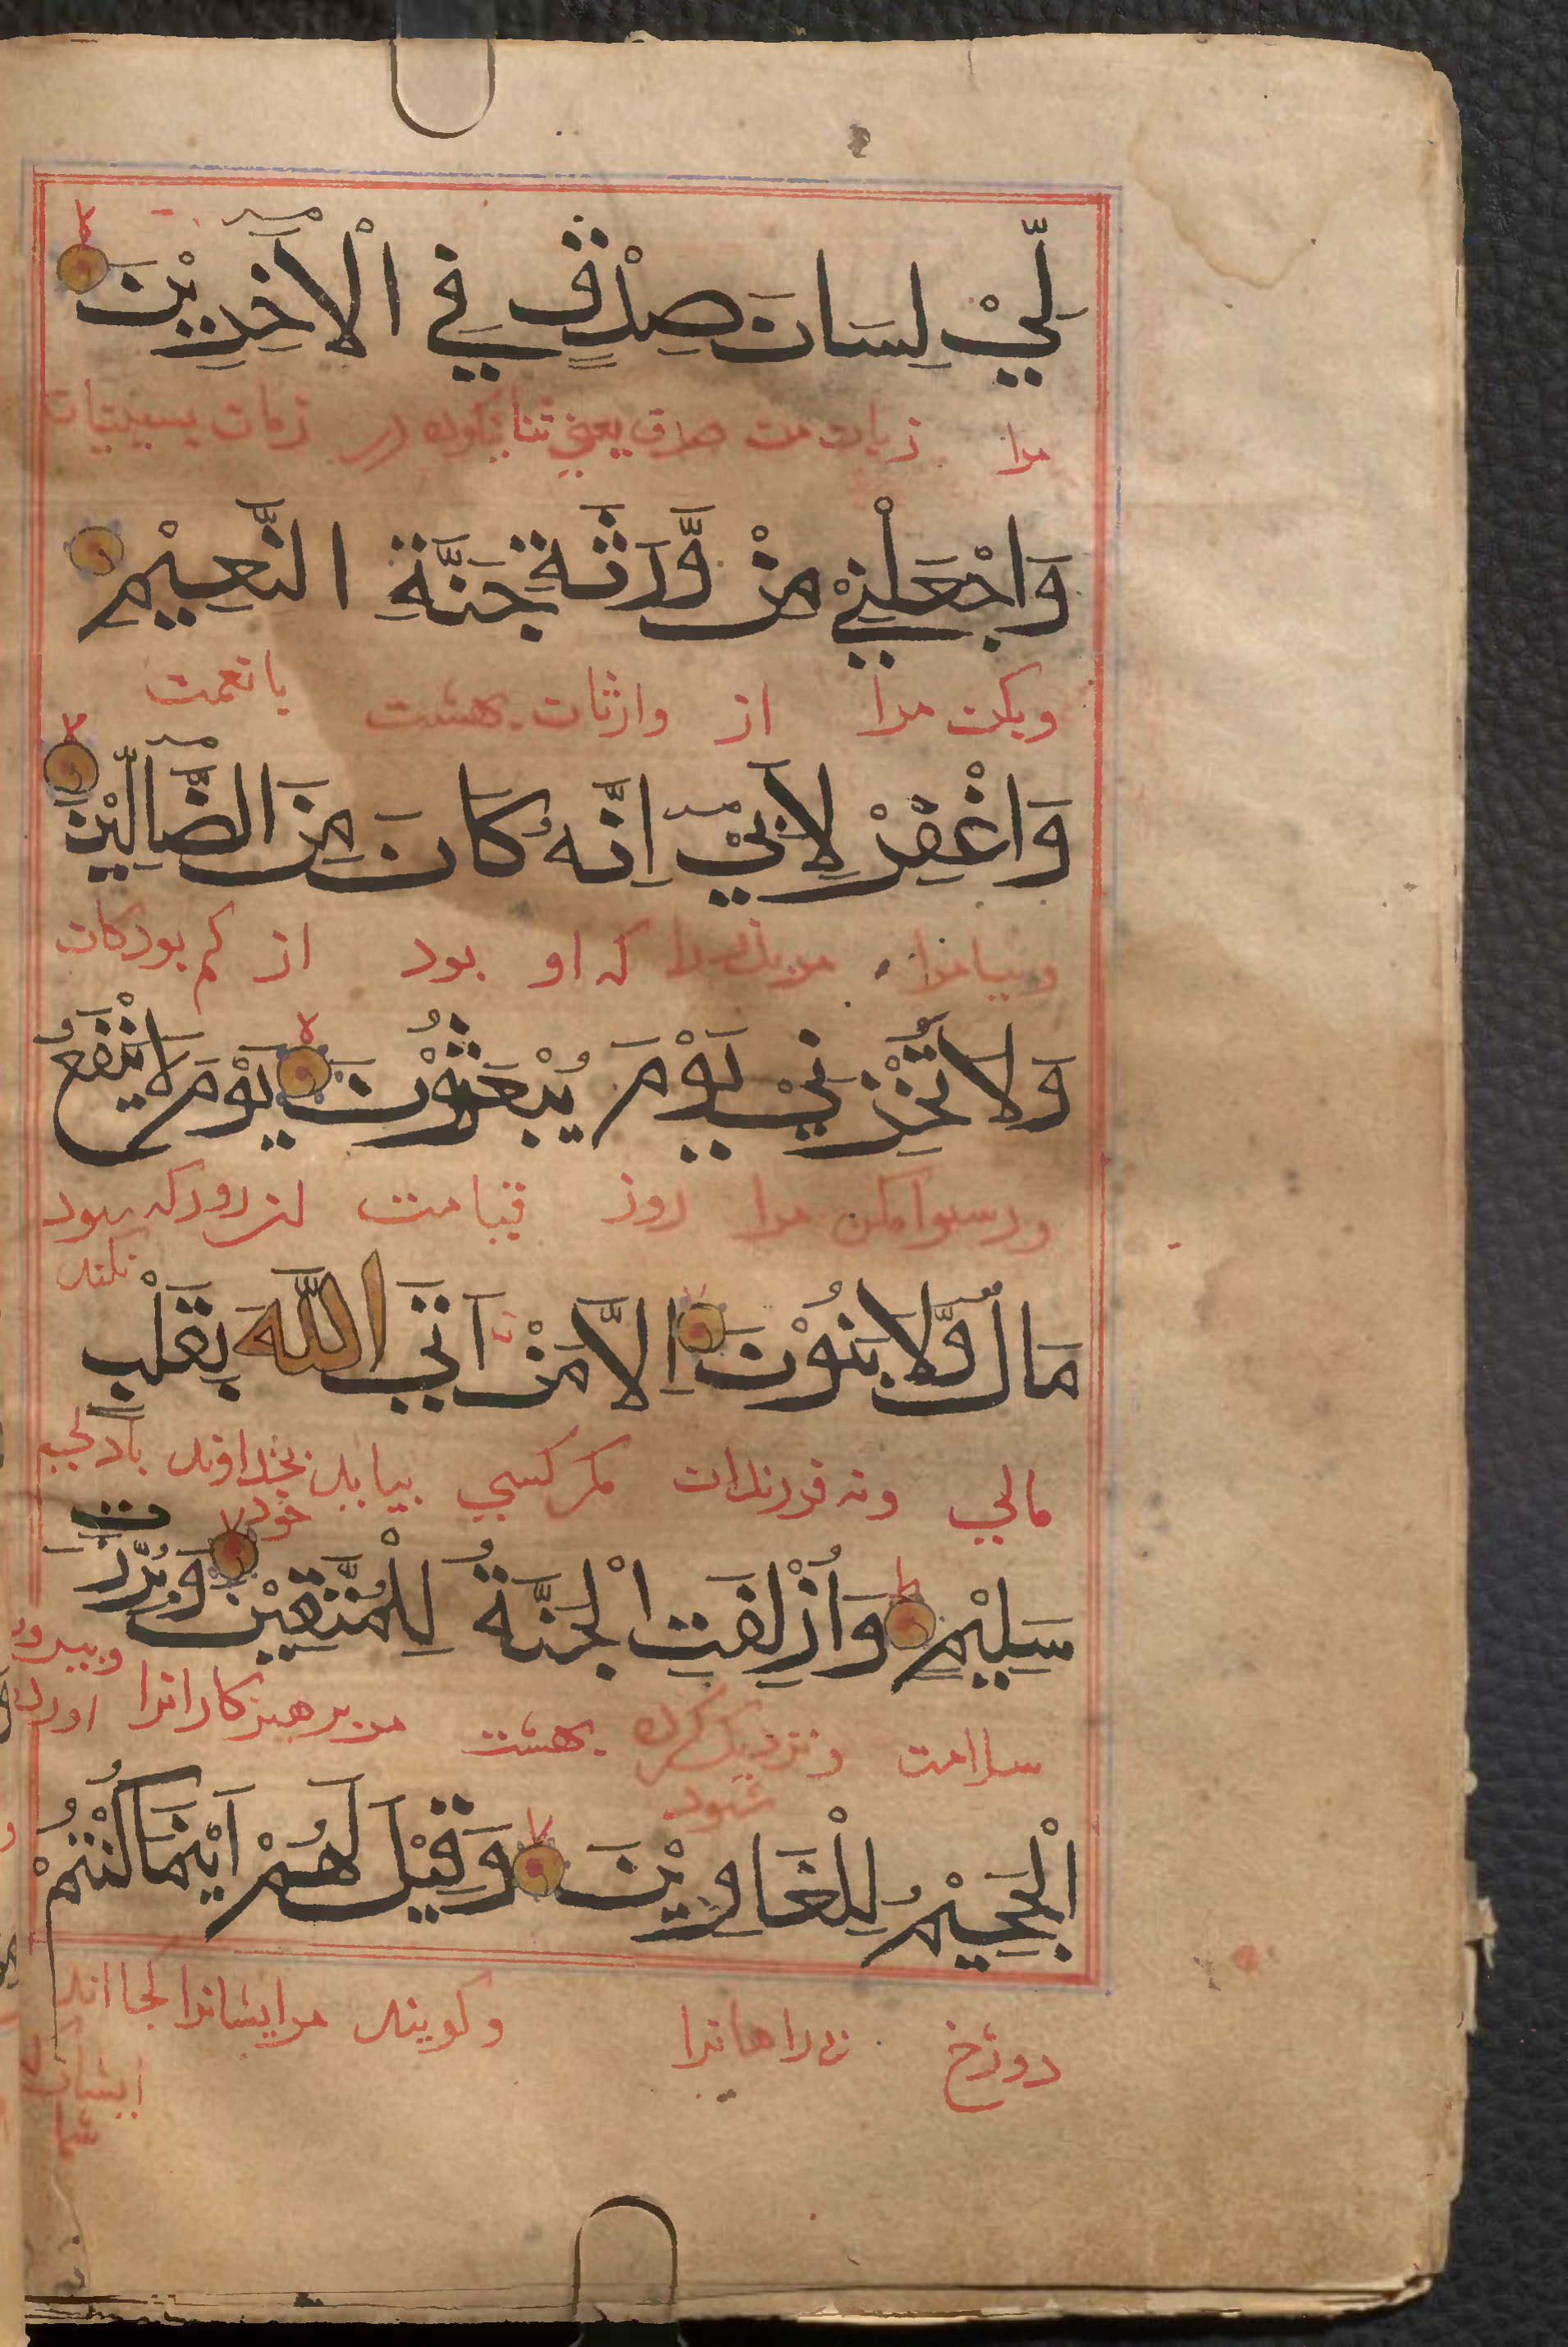 لِّيْ لِسَانَ صِدْقٍ فِي الْآخِرِيْنَ
مرا زبان صدق يعني ثنا نيكو در زمان پسينيان
وَاجْعَلْنِيْ مِنْ وَّرَثَةِ جَنَّةِ النَّعِيْمِ
وبكن مرا از وارثان بهشت با نعمت
وَاغْفِرْ لِاَبِيْ اِنَّهُ كَانَ مِنَ الضَّالِّيْنَ
وبيامرز مر پدر مرا كه او بود از كم بودكان
وَلَا تُخْزِنِيْ يَوْمَ يُبْعَثُوْنَ يَوْمَ لَا يَنْفَعُ
ورسوا مكن مرا روز قيامت روز كه سود
نكند
مَالٌ وَّلَا بَنُوْنَ اِلَّا مَنْ اَتَى اللّٰهَ بِقَلْبٍ
مالي ونه فرزندان مكر كسي بيايد بخداوند با دلي
خود
سَلِيْمٍ وَاُزْلِفَتِ الْجَنَّةُ لِلْمُتَّقِيْنَ وَبُرِّزَتِ
سلامت ونزديك كرده بهشت مر پرهيزكارانرا وبيرون آورده
شود
الْجَحِيْمُ لِلْغَاوِيْنَ وَقِيْلَ لَهُمْ اَيْنَمَا كُنْتُمْ
دوزخ راهانرا وكويند مر ايشانرا كجا اند
ايشان
شما